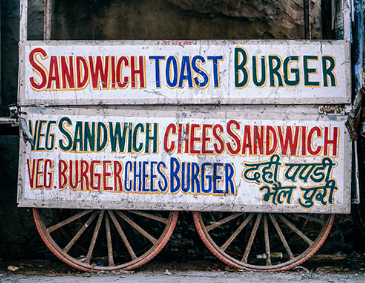 SANDWICH TOAST BURGER
VEG. SANDWICH CHEES SANDWICH
VEG. BURGER CHEES BURGER दही पपडी
भैल पुरी